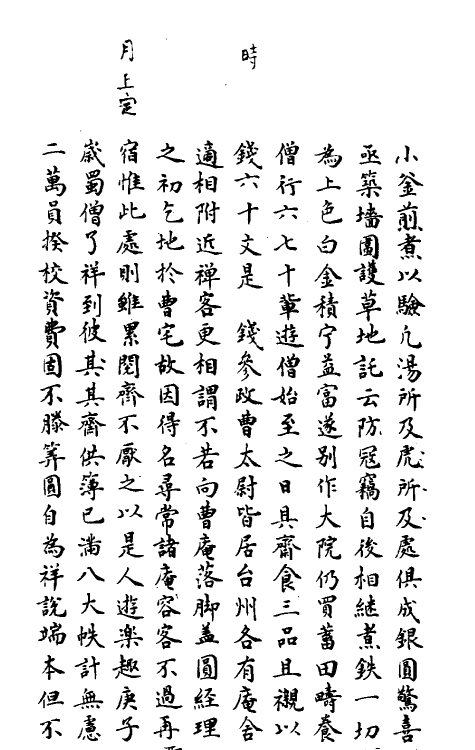 小釜煎煮以驗凡湯所及虎所及處俱成銀圓驚喜
亟築墻圍護草地託云防冦竊自後相継煮鉄一切
為上色白金積宁益富遂别作大院仍買蓄田疇養
僧行六七十軰遊僧始至之日具齋食三品且襯以
時
錢六十文是 錢參政曹太尉皆居台州各有庵舍
適相附近禅客更相謂不若向曹庵落脚盖圓經理
之初乞地於曹宅故因得名尋常諸庵容客不過再
月上定
宿惟此處則雖累閱齊不厭之以是人遊楽趣庚子
嵗蜀僧了祥到彼其其齊供薄已滿八大帙計無慮
二萬員揆校資費固不勝筭圓自為祥說端本但不